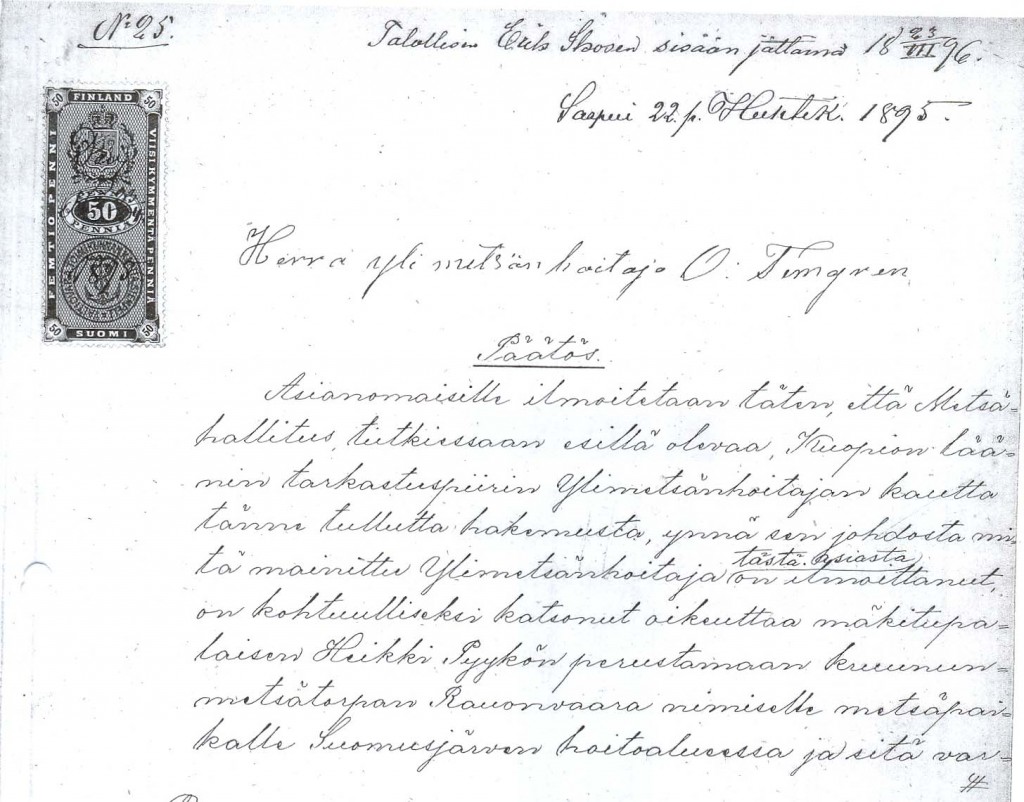 No 25.
Talollisen Erik sisään jättämä 18 23/VII 96.
Saapui 22. p. Huhtik. 1895.
FINLAND
50 50
FEMTIO PENNI
VIISI KYMMENTÄ PENNIÄ
50
PENNIÄ
50 50
SUOMI
Herra yli metsänhoitaja O. Timgren
Päätös.
Asianomaisille ilmoitetaan täten, että Metsä=
hallitus, tutkiessaan esillä olevaa, Kuopion lää=
nin tarkastuspiirin Ylimetsänhoitajan kautta
tänne tullutta hakemusta, ynnä sen johdosta mi=
tästä asiasta
tä mainittu Ylimetsänhoitaja on ilmoittanut,
on kohtuulliseksi katsonut oikeuttaa mäkitupa=
laisen Heikki Pyykön perustamaan kruunun=
metsätorpan Rauonvaara nimiselle metsäpai=
kalle Suomusjärven hoitoalueessa ja sitä var=